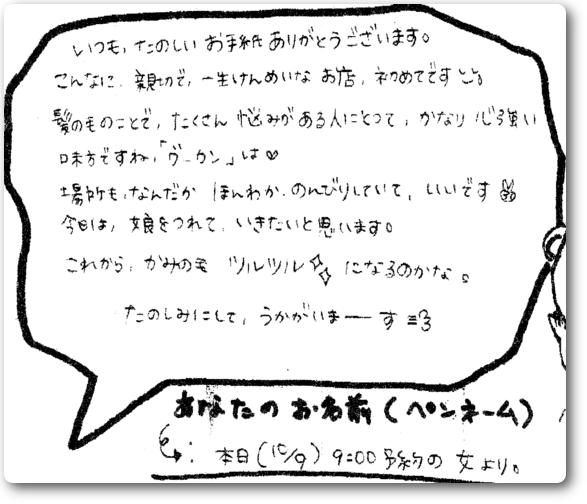 いつも、たのしい お手紙 ありがとうございます。
こんなに、親切で、一生けんめいな お店、初めてです
髪の毛のことで、たくさん 悩みがある人にとって、かなり 心強い
味方ですね、「ヴーカン」は♡
場所も、なんだか ほんわか、のんびりしていて、いいです✌
今日は、娘をつれて、いきたいと思います。
これから、かみの毛 ツルツル✧✧になるのかな。
たのしみにして、うかがいまーーす
あなたのお名前(ペンネーム)
↳: 本日(10/9) 9:00予約の 女より。